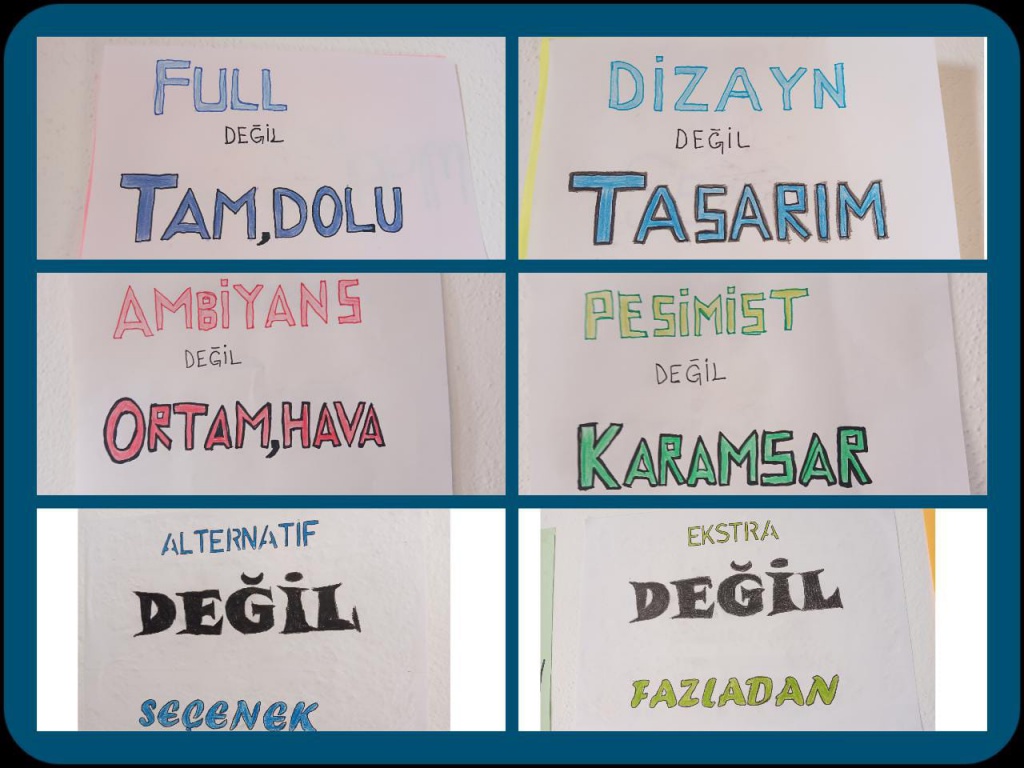 FULL
DEĞİL
TAM,DOLU
DİZAYN
DEĞİL
TASARIM
AMBİYANS
DEĞİL
ORTAM,HAVA
PESİMİST
DEĞİL
KARAMSAR
ALTERNATİF
DEĞİL
SEÇENEK
EKSTRA
DEĞİL
FAZLADAN